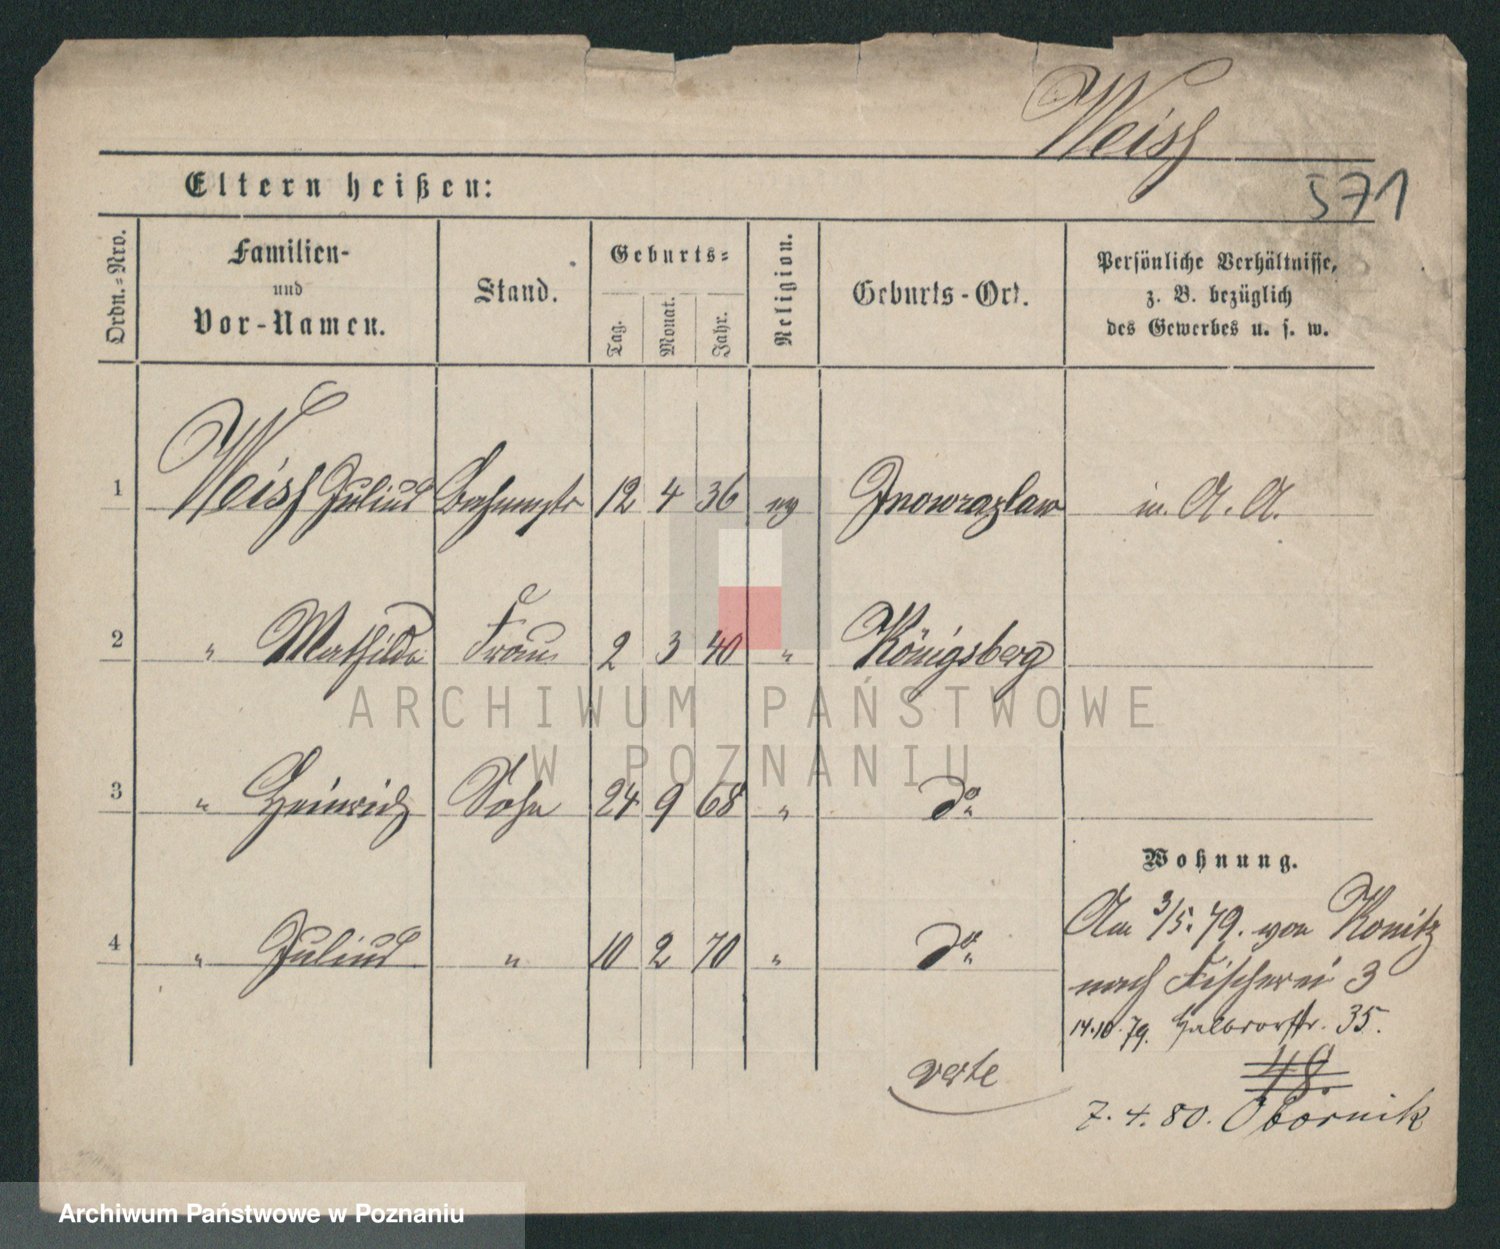 Weiss
571
Eltern heißen:
Ordn.=Nro.
Familien-
und
Vor-Namen.
Stand.
Geburts=
Tag.
Monat.
Jahr.
Religion.
Geburts-Ort.
Persönliche Verhältnisse,
z. B. bezüglich
des Gewerbes u. s. w.
1 Weiss Julius 12 4 36 ev Inowrazlaw m. A. A.
2 " Mathilde Frau 2 3 40 " Königsberg
3 " Heinrich Sohn 24 9 68 " do
4 " Julius " 10 2 70 " do
Wohnung.
Am 3/5. 79. von Konitz
nach Fischerei 3
14.10.79. Halbdorfstr. 35.
48.
verte
7. 4. 80. Obornik
ARCHIWUM PAŃSTWOWE
W POZNANIU
Archiwum Państwowe w Poznaniu